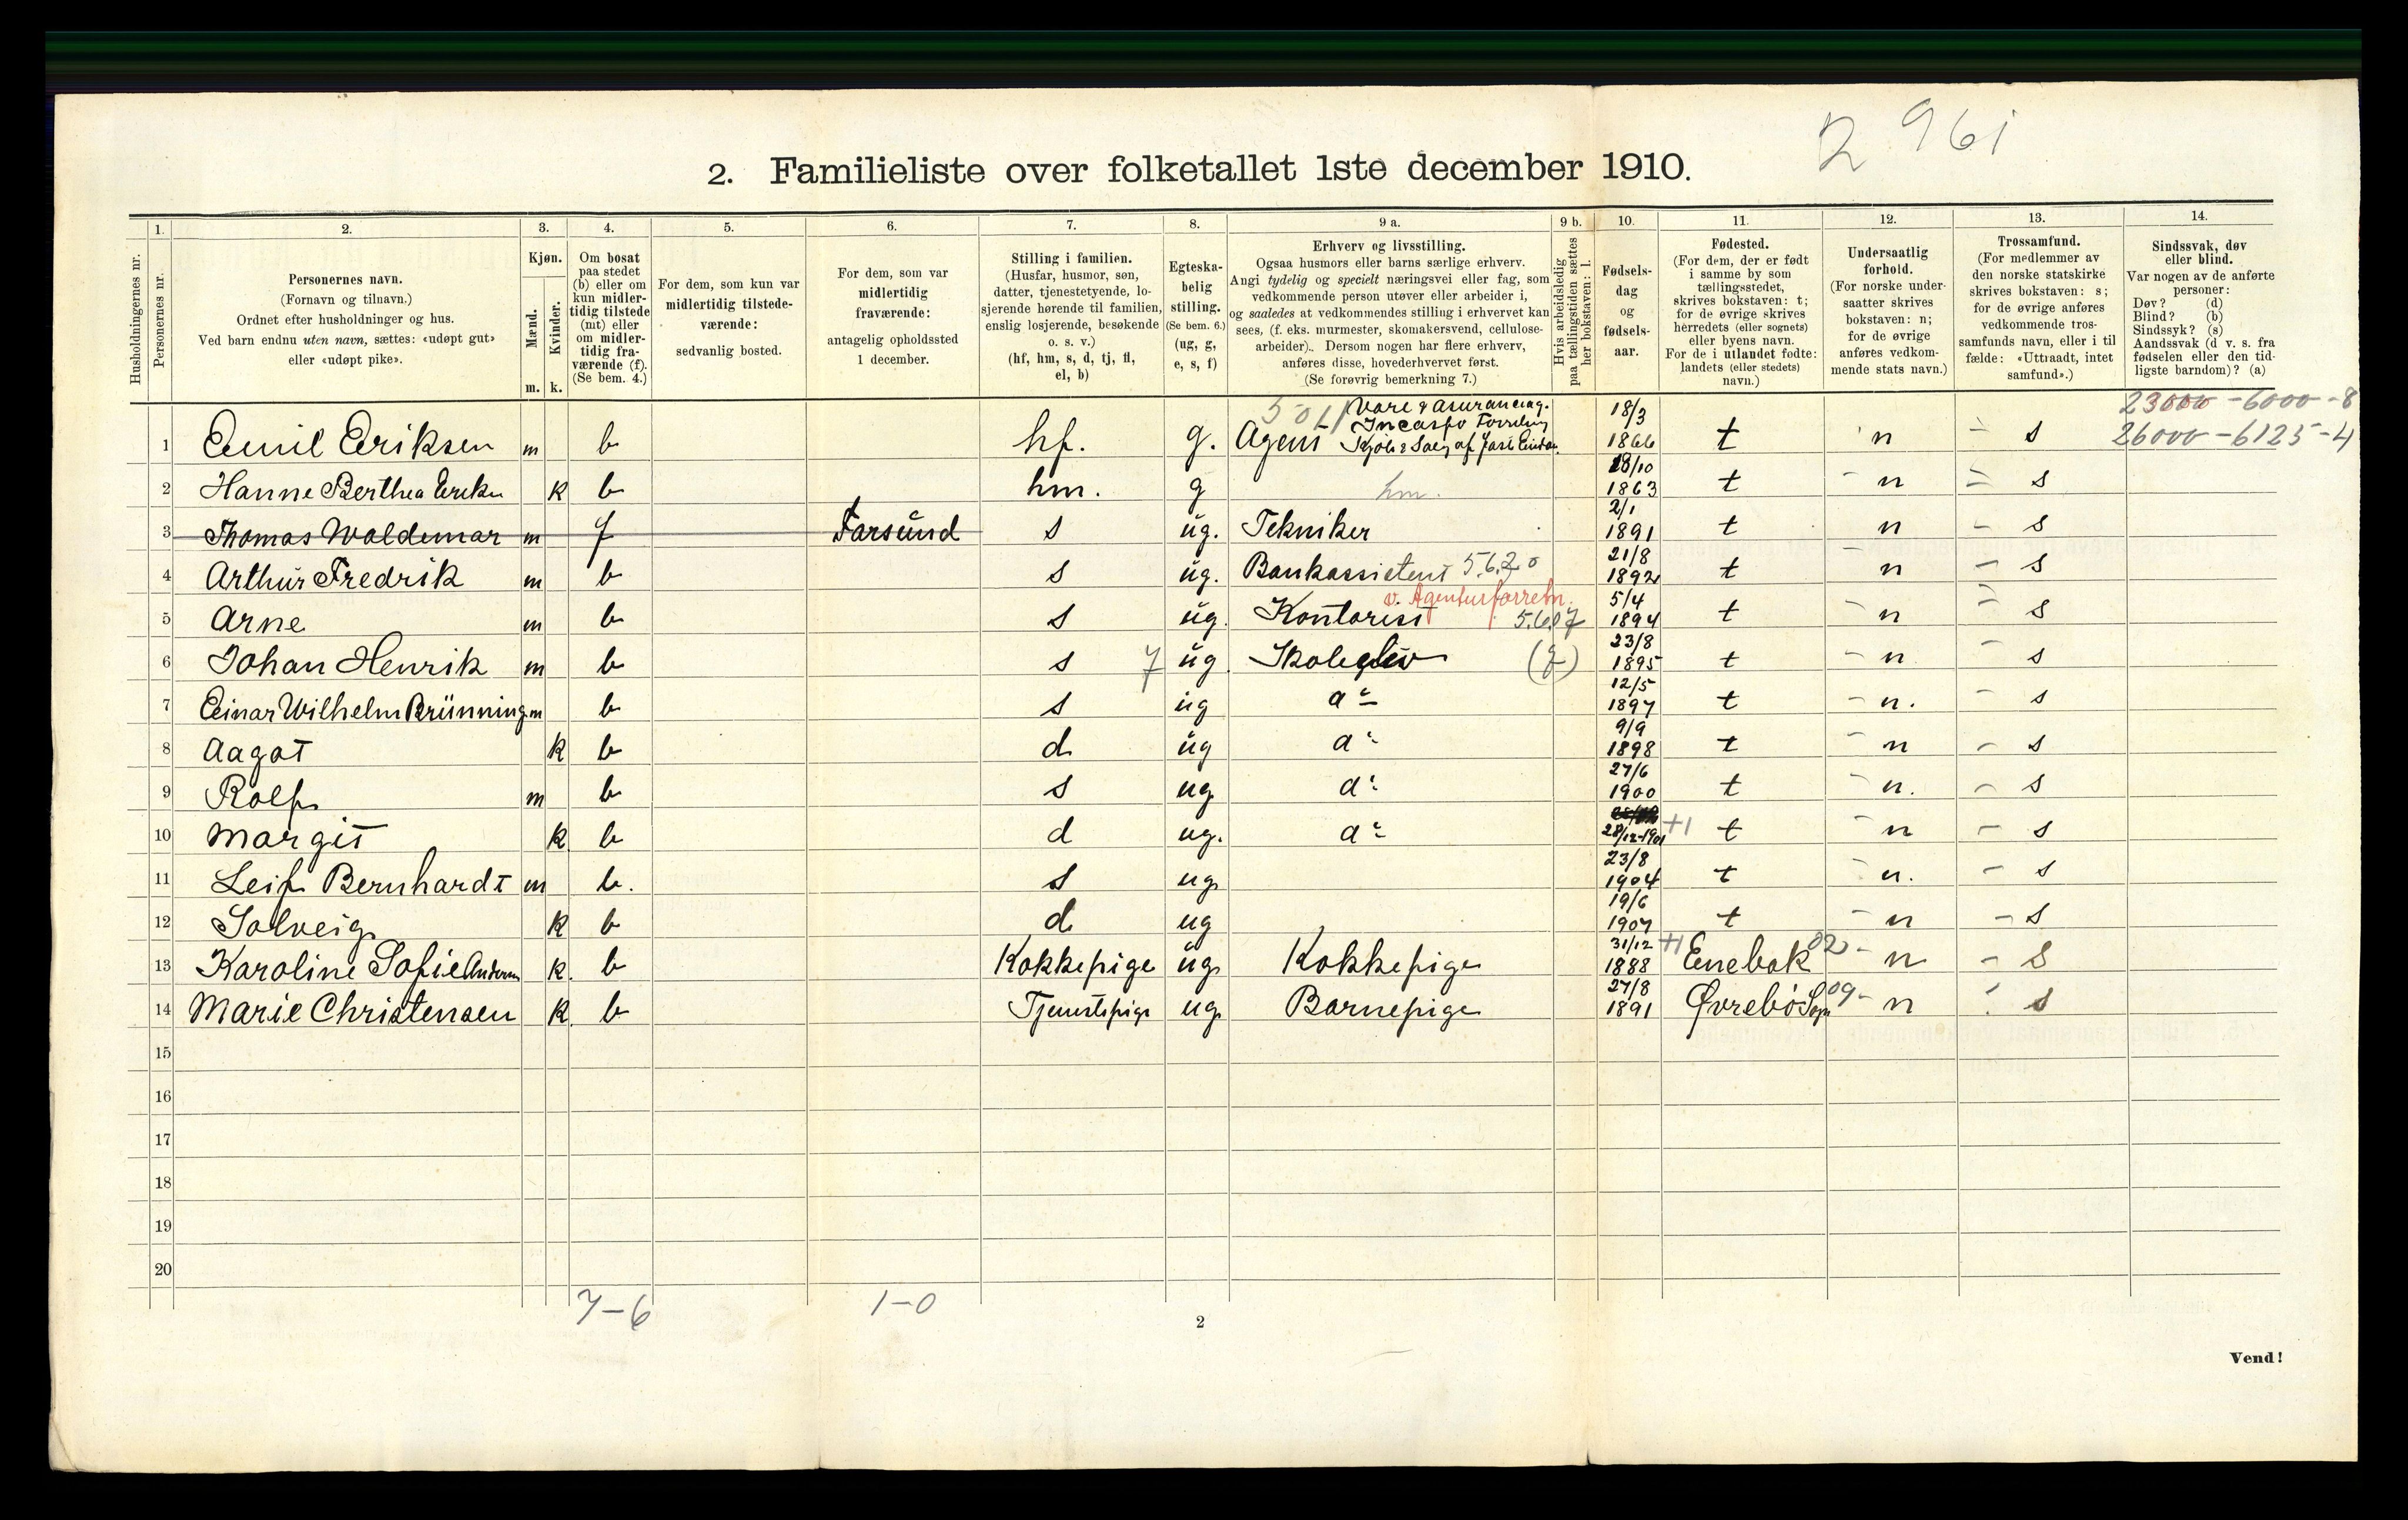 2 961
2. Familieliste over folketallet 1ste december 1910.
Husholdningernes nr.
1. Personernes nr.
2. Personernes navn. (Fornavn og tilnavn.) Ordnet efter husholdninger og hus. Ved barn endnu uten navn, sættes: «udøpt gut» eller «udøpt pike».
3. Kjøn. Mænd. m. Kvinder. k.
4. Om bosat paa stedet (b) eller om kun midlertidig tilstede (mt) eller om midlertidig fraværende (f). (Se bem. 4.)
5. For dem, som kun var midlertidig tilstedeværende: sedvanlig bosted.
6. For dem, som var midlertidig fraværende: antagelig opholdssted 1 december.
7. Stilling i familien. (Husfar, husmor, søn, datter, tjenestetyende, losjerende hørende til familien, enslig losjerende, besøkende o. s. v.) (hf, hm, s, d, tj, fl, el, b)
8. Egteskabelig stilling. (Se bem. 6.) (ug, g, e, s, f)
9 a. Erhverv og livsstilling. Ogsaa husmors eller barns særlige erhverv. Angi tydelig og specielt næringsvei eller fag, som vedkommende person utøver eller arbeider i, og saaledes at vedkommendes stilling i erhvervet kan sees, (f. eks. murmester, skomakersvend, cellulosearbeider). Dersom nogen har flere erhverv, anføres disse, hovederhvervet først. (Se forøvrig bemerkning 7.)
9 b. Hvis arbeidsledig paa tællingstiden sættes her bokstaven: l.
10. Fødselsdag og fødselsaar.
11. Fødested. (For dem, der er født i samme by som tællingsstedet, skrives bokstaven: t; for de øvrige skrives herredets (eller sognets) eller byens navn. For de i utlandet fødte: landets (eller stedets) navn.)
12. Undersaatlig forhold. (For norske undersaatter skrives bokstaven: n; for de øvrige anføres vedkommende stats navn.)
13. Trossamfund. (For medlemmer av den norske statskirke skrives bokstaven: s; for de øvrige anføres vedkommende trossamfunds navn, eller i tilfælde: «Uttraadt, intet samfund».)
14. Sindssvak, døv eller blind. Var nogen av de anførte personer: Døv? (d) Blind? (b) Sindssyk? (s) Aandssvak (d v. s. fra fødselen eller den tidligste barndom)? (a)
23000 - 6000 - 8
1 Emil Eriksen m b hf. g. Agent 18/3 1866 t n s 26000 - 6125 - 4
2 Hanne Berthea k b hm. g hm. 18/10 1863 t n s
3 Thomas Waldemar m f Farsund s ug. Tekniker 2/1 1891 t n s
4 Arthur Fredrik m b s ug. Bankassistent 5.6.20 21/8 1892 t n s
v. Agenturforretn.
5 Arne m b s ug. Kontorist 5.6.07 5/4 1894 t n s
6 Johan Henrik m b s 7 ug Skoleelev 23/8 1895 t n s
7 Einar Wilhelm Brünning m b s ug do 12/5 1897 t n. s
8 Aagot k b d ug do 9/9 1898 t n s
9 Rolf m b s ug do 27/6 1900 t n. s
10 Margit k b d ug. do 28/12-1901 +1 t n s
11 Leif Bernhardt m b. s ug 23/8 1904 t n. s
12 Solveig k b d ug 19/6 1907 t n s
13 Karoline Sofie Andersen k. b Kokkepige ug Kokkepige 31/12 1888 +1 Enebak 02 n s
14 Marie Christensen k. b Tjenestepige ug Barnepige 27/8 1891 Øvrebö Sogn 09 n s
15
16
17
18
19
20
7-6 1-0
2
Vend!